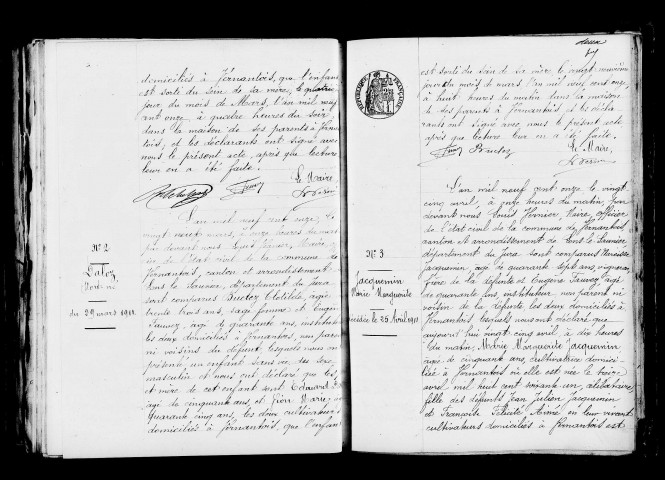 domiciliés à Vernantois, que l'enfant
est sorti du sein de sa mère, le quatre
jour du mois de Mars, l'an mil neuf
cent onze, à quatre heures du soir
dans la maison de ses parents à Verna
tois; et les déclarants ont signé avec
nous le présent acte, après que lecture
leur en a été faite.
Le Maire,
Nº 2
Mort né
du 29 mars 1911
L'an mil neuf cent onze, le
vingt neuf mars, à onze heures du mat
par devant nous Louis Vernier, Maire,
de l'état civil de la commune de
Vernantois, canton et arrondissement
Lons le Saunier, département du Jura
sont comparus Clotilde, agée
trente trois ans, sage femme et Eugène
agé de quarante ans, instituteur
les deux domiciliés à Vernantois, non parent
ni voisins du défunt, lesquels nous ont
présenté un enfant sans vie du sexe
masculin et nous ont déclaré que les
et mère de cet enfant sont Edouard
agé de cinquante ans, et Marie,
quarante cinq ans, les deux cultivateurs
domiciliés à Vernantois, que l'enfant
deux
RÉPUBLIQUE FRANÇAISE
est sorti du sein de sa mère le vingt neuvième
jour du mois de mars l'an mil neuf cent onze,
à huit heures du matin dans la maison
de ses parents à Vernantois et les décla
rants ont signé avec nous le présent acte
après que lecture leur en a été faite.
Le Maire,
Nº 3
Jacquemin
Marie Marguerite
décédée le 25 Avril 1911
L'an mil neuf cent onze le vingt
cinq avril, à onze heures du matin, par
devant nous Louis Vernier, Maire, officier
de l'état civil de la commune de Vernantois,
canton et arrondissement de Lons le Saunier
département du Jura sont comparus
Jacquemin, agé de quarante sept ans, vigneron,
frère de la défunte et Eugène agé
de quarante ans, instituteur non parent ni
voisin de la défunte les deux domiciliés
à Vernantois lesquels nous ont déclaré que
aujourd'hui vingt cinq avril à dix heures
du matin, Marie Marguerite Jacquemin
agée de cinquante ans, cultivatrice domici
liée à Vernantois où elle est née le treize
avril mil huit cent soixante un, célibataire
fille des défunts Jean Julien Jacquemin
et Françoise en leur vivant
cultivateurs domiciliés à Vernantois est